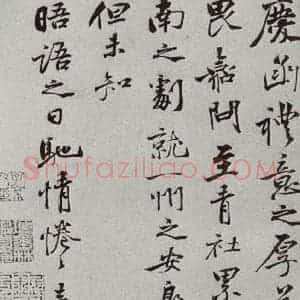 慶函禮意之厚
畏嘉問至青社累
南之劇就一州之安
但未知
晤語之日馳情惓惓
Shufaziliao.COM